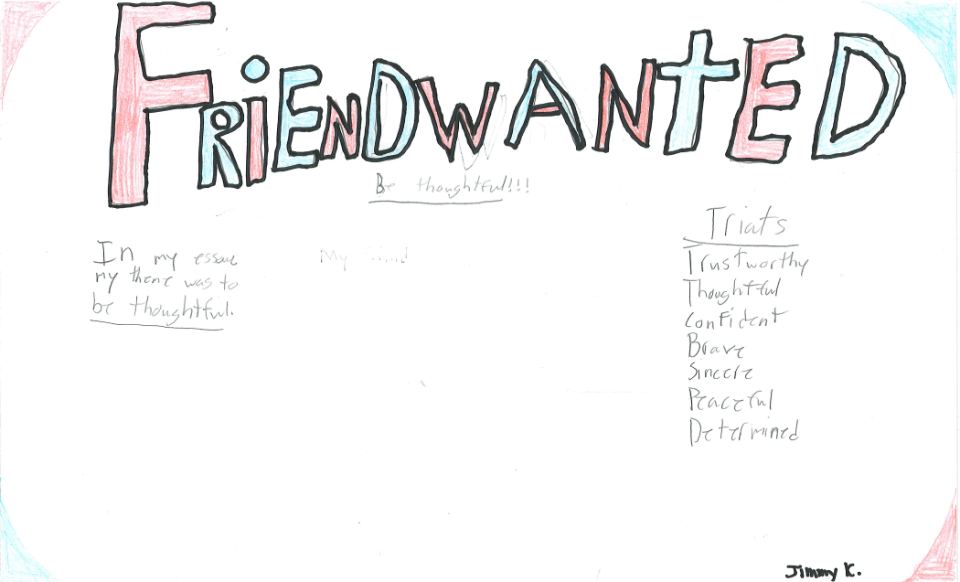 FRiENDWANtED
Be thoughtful!!!
In my essay
my theme was to
be thoughtful.
My friend
Triats
Trustworthy
Thoughtful
Confident
Brave
Sincere
Peaceful
Determined
Jimmy K.